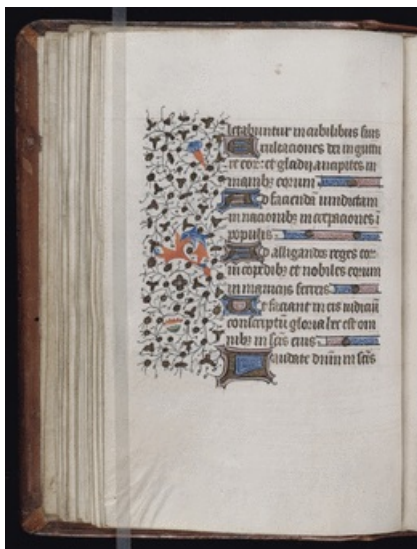 letabuntur in cubilibus suis
Exultaciones dei in guttu
re eor: et gladij ancipites in
manibꝫ eorum
Ad faciendã uindictam
in nacionibꝫ increpaciones ĩ
populis
Ad alligandos reges eor
in copedibꝫ et nobiles eorum
in manicis ferreis
Ut faciant in eis iudiciũ
conscriptũ gloria hec est om
nibꝫ in scĩs eius
Laudate dñm in scĩs